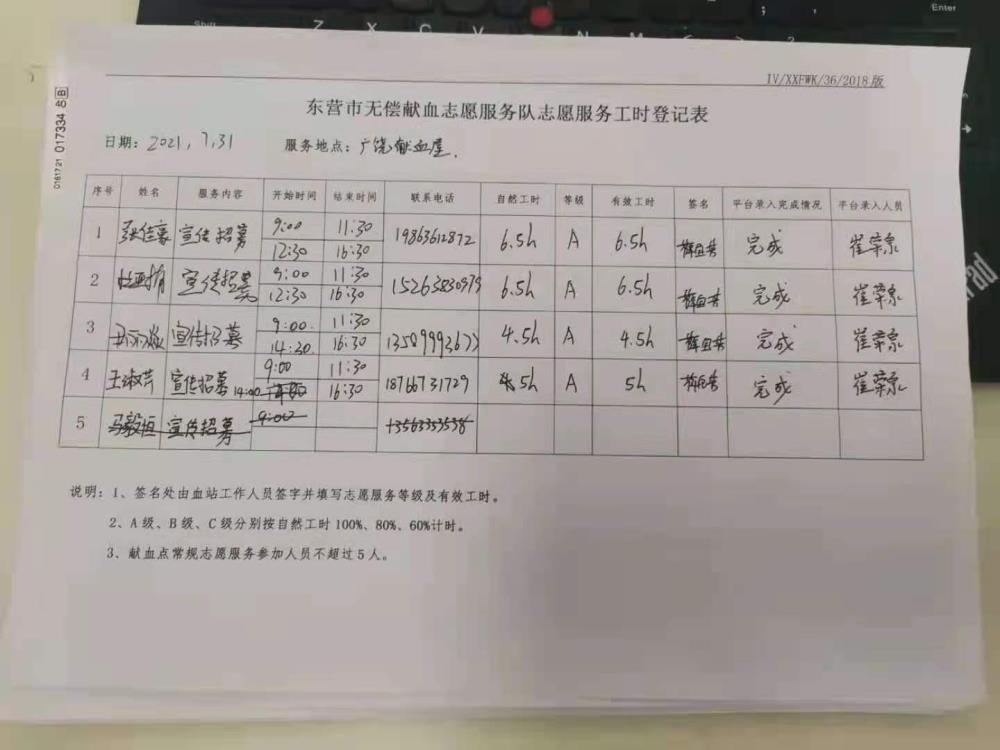 Shift Z X C V B N M ; Enter
IV/XXFWK/36/2018版
017334
东营市无偿献血志愿服务队志愿服务工时登记表
日期：2021，7，31 服务地点：广饶献血屋.
序号 姓名 服务内容 开始时间 结束时间 联系电话 自然工时 等级 有效工时 签名 平台录入完成情况 平台录入人员
1 张佳豪 宣传招募 9:00 11:30 19863612872 6.5h A 6.5h 完成 崔荣泉
12:30 16:30
2 宣传招募 9:00 11:30 15263830979 6.5h A 6.5h 完成 崔荣泉
12:30 16:30
3 宣传招募 9:00 11:30 4.5h A 4.5h 完成 崔荣泉
14:30 16:30
4 王淑芹 宣传招募 9:00 11:30 18766731729 5h A 5h 完成 崔荣泉
14:00 16:30
5 马毅恒 宣传招募 9:00 13563353538
说明：1、签名处由血站工作人员签字并填写志愿服务等级及有效工时。
2、A级、B级、C级分别按自然工时100%、80%、60%计时。
3、献血点常规志愿服务参加人员不超过5人。